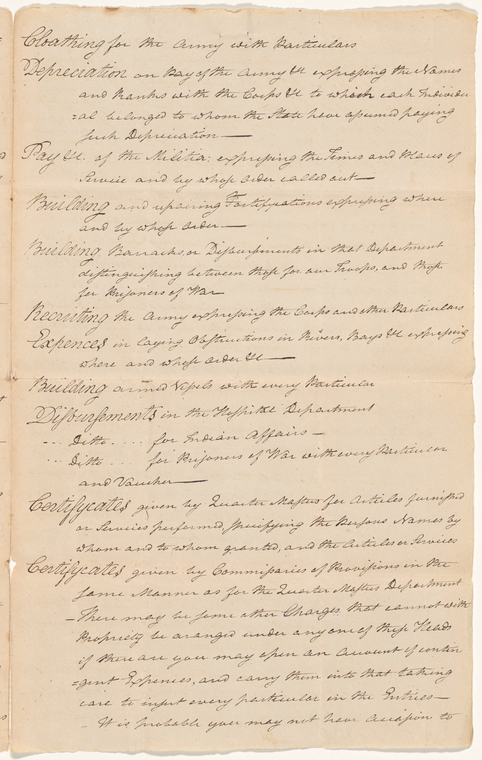 Cloathing for the Army with Particulars
Depreciation on Pay of the Army &c expressing the Names
and Ranks with the Corps &c to which each Individu
=al belonged to whom the State have assumed paying
such Depreciation —
Pay &c. of the Militia; expressing the Times and Places of
Service and by whose order called out —
Building and repairing Fortifications expressing where
and by whose Order —
Building Barracks, or Disbursements in that Department
distinguishing between those for our Troops, and those
for Prisoners of War
Recruiting the Army expressing the Corps and other Particulars
Expences in laying Obstructions in Rivers, Bays &c expressing
where and whose Order &c —
Building armed Vessels with every Particular
Disbursements in the Hospital Department
... Ditto .... for Indian Affairs —
... Ditto .... for Prisoners of War with every Particular
and Voucher —
Certifycates given by Quarter Masters for Articles furnished
or Services performed, specifying the Persons Names by
whom and to whom granted, and the Articles or Services
Certifycates given by Commissaries of Provisions in the
same Manner as for the Quarter Masters Department
— There may be some other Charges that cannot with
Propriety be aranged under any one of these Heads
if there are you may open an Account of contin
=gent Expences, and carry them into that taking
care to insert every particular in the Entries —
— It is probable you may not have occasion to